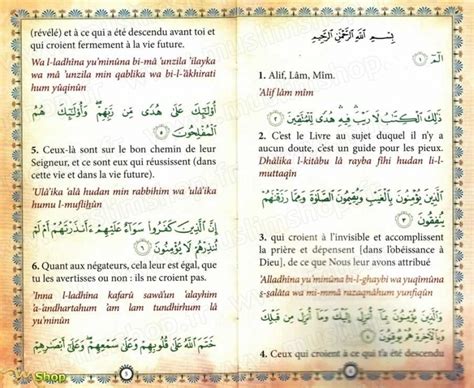 بِسْمِ اللَّهِ الرَّحْمَٰنِ الرَّحِيمِ
الٓمٓ ١
1. Alif, Lâm, Mîm.
'Alif lâm mîm
ذَٰلِكَ الْكِتَٰبُ لَا رَيْبَ فِيهِ هُدًى لِّلْمُتَّقِينَ ٢
2. C'est le Livre au sujet duquel il n'y a
aucun doute, c'est un guide pour les pieux.
Dhâlika l-kitâbu lâ rayba fîhi hudan li-l-
muttaqîn
الَّذِينَ يُؤْمِنُونَ بِالْغَيْبِ وَيُقِيمُونَ الصَّلَوٰةَ وَمِمَّا رَزَقْنَٰهُمْ
يُنفِقُونَ ٣
3. qui croient à l'invisible et accomplissent
la prière et dépensent [dans l'obéissance à
Dieu], de ce que Nous leur avons attribué
'Alladhîna yu'minûna bi-l-ghaybi wa yuqîmûna
ṣ-ṣalâta wa mi-mmâ razaqnâhum yunfiqûn
وَالَّذِينَ يُؤْمِنُونَ بِمَا أُنزِلَ إِلَيْكَ وَمَا أُنزِلَ مِن
قَبْلِكَ وَبِالْآخِرَةِ هُمْ يُوقِنُونَ ٤
4. Ceux qui croient à ce qui t'a été descendu
(révélé) et à ce qui a été descendu avant toi et
qui croient fermement à la vie future.
Wa l-ladhîna yu'minûna bi-mâ 'unzila 'ilayka
wa mâ 'unzila min qablika wa bi-l-'âkhirati
hum yûqinûn
أُولَٰئِكَ عَلَىٰ هُدًى مِّن رَّبِّهِمْ وَأُولَٰئِكَ هُمُ
الْمُفْلِحُونَ ٥
5. Ceux-là sont sur le bon chemin de leur
Seigneur, et ce sont eux qui réussissent (dans
cette vie et dans la vie future).
'Ulâ'ika 'alâ hudan min rabbihim wa 'ulâ'ika
humu l-mufliḥûn
إِنَّ الَّذِينَ كَفَرُوا سَوَاءٌ عَلَيْهِمْ ءَأَنذَرْتَهُمْ أَمْ لَمْ
تُنذِرْهُمْ لَا يُؤْمِنُونَ ٦
6. Quant aux négateurs, cela leur est égal, que
tu les avertisses ou non : ils ne croient pas.
'Inna l-ladhîna kafarû sawâ'un 'alayhim
'a-'andhartahum 'am lam tundhirhum lâ
yu'minûn
خَتَمَ اللَّهُ عَلَىٰ قُلُوبِهِمْ وَعَلَىٰ سَمْعِهِمْ وَعَلَىٰ أَبْصَٰرِهِمْ
Shop